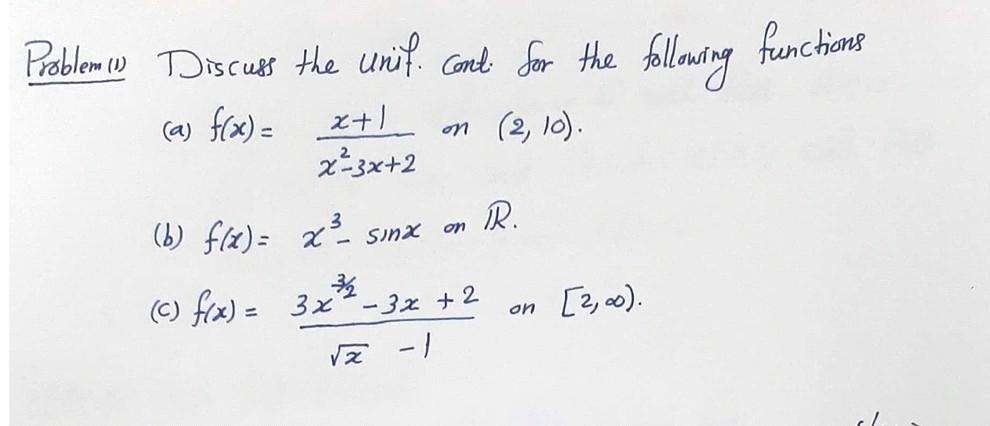 Problem (1) Discuss the unif. cont. for the following functions
(a) f(x) = (x+1)/(x²-3x+2) on (2, 10).
(b) f(x) = x³ - sinx on ℝ.
(c) f(x) = (3x^(3/2) - 3x + 2)/(√x - 1) on [2, ∞).